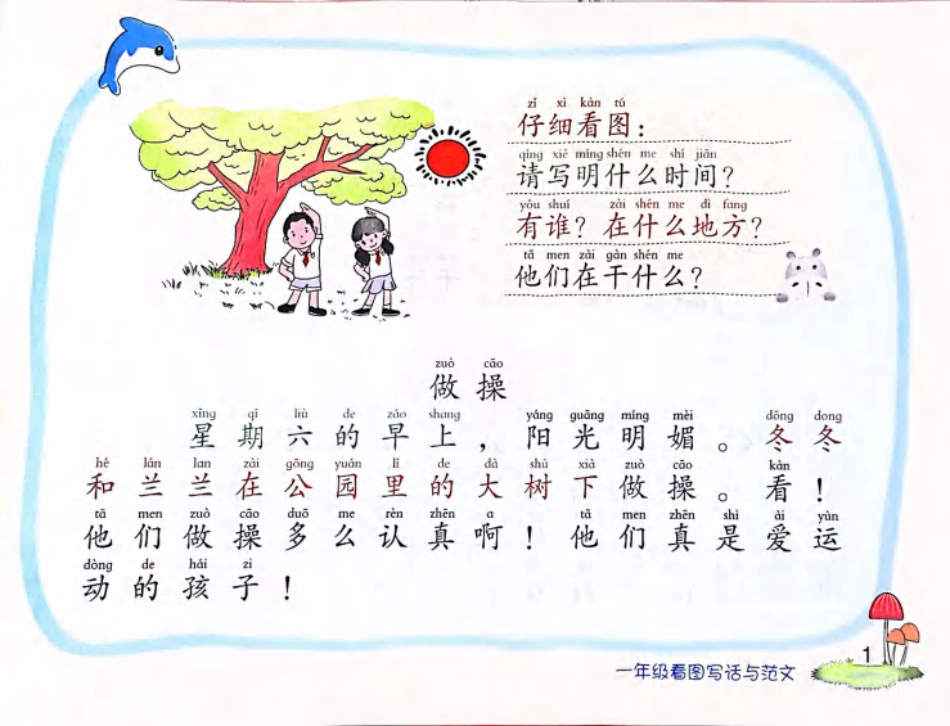 zǐ xì kàn tú
仔细看图：
qǐng xiě míng shén me shí jiān
请写明什么时间？
yǒu shuí zài shén me dì fang
有谁？在什么地方？
tā men zài gàn shén me
他们在干什么？
zuò cāo
做操
xīng qī liù de zǎo shang yáng guāng míng mèi dōng dong
星期六的早上，阳光明媚。冬冬
hé lán lan zài gōng yuán lǐ de dà shù xià zuò cāo kàn
和兰兰在公园里的大树下做操。看！
tā men zuò cāo duō me rèn zhēn a tā men zhēn shì ài yùn
他们做操多么认真啊！他们真是爱运
dòng de hái zi
动的孩子！
1
一年级看图写话与范文